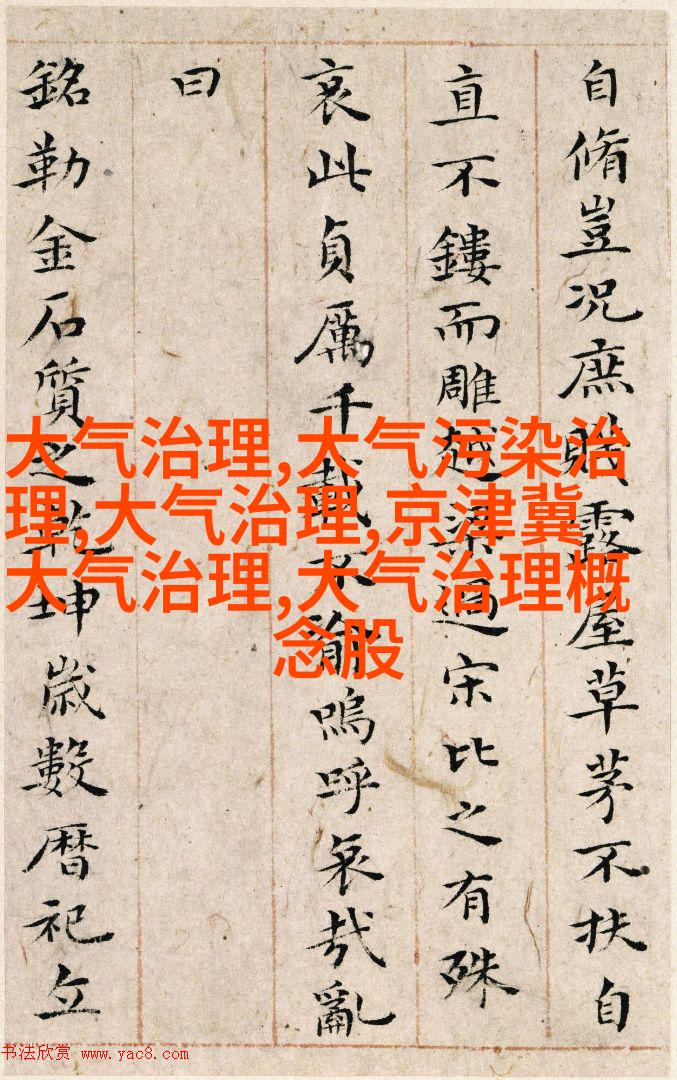 自脩豈況庶賤露屋草茅不扶自
直不鏤而雕越梁過宋比之有殊
哀此貞厲千載不渝嗚呼哀哉亂
曰
銘勒金石質之乾坤歲數曆祀立
大气治理,大气污染治
理,大气治理,京津冀
大气治理,大气治理概
念股
书法欣赏 www.yac8.com